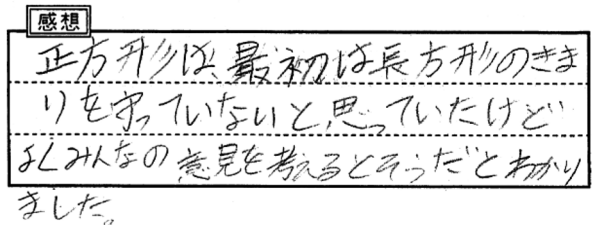 感想
正方形は、最初は長方形のきま
りを守っていないと、思っていたけど
よくみんなの意見を考えるとそうだとわかり
ました。